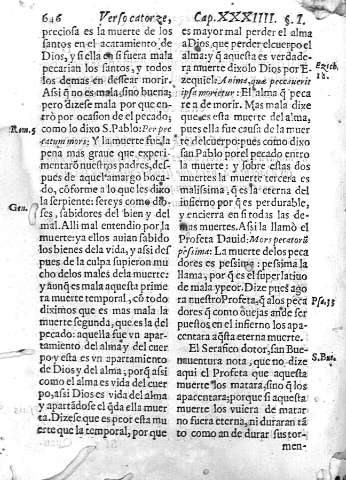 646 Verso catorze, Cap. XXXIIII. §. I.
preciosa es la muerte de los
santos en el acatamiento de
Dios, y si ella en si fuera mala
pecarian los santos, y todos
los demas en dessear morir.
Assi q̃ no es mala, sino buena;
pero dizese mala por que en-
trò por ocasion del pecado;
Rom. 5
como lo dixo S. Pablo: Per pec
catum mors; Y la muerte fue la
pena mas graue que experi-
mentarō nuestros padres, des-
pues de aquel amargo boca-
do, cōforme a lo que les dixo
la serpiente: sereys como dio-
Gen.
ses, sabidores del bien y del
mal. Alli mal entendio por la
muerte: ya ellos auian sabido
los bienes de la vida, y assi des
pues de la culpa supieron mu
cho del os males de la muerte:
y aūnq̃ es mala aquesta prime
ra muerte temporal, cō todo
diximos que es mas mala la
muerte segunda, que es la del
pecado: aquella fue vn apar-
tamiento del alma y del cuer
po y esta es vn apartamiento
de Dios y del alma; porq̃ assi
como el alma es vida del cuer
po, assi Dios es vida del alma
y apartādose el q̃da ella muer
ta. Dizese que es peor esta mu
erte que la temporal, por que
es mayor mal perder el alma
a Dios, que perder el cuerpo el
alma: y q̃ aquesta es verdade-
ra muerte dixolo Dios por E-
Ezech. 18.
zequiel: Anima, quæ peccauerit
ipsa morietur: El alma q̃ peca-
re a de morir. Mas mala dize
que es esta muerte del alma,
pues ella fue causa de la muer
te del cuerpo: pues como dixo
san Pablo por el pecado entro
la muerte: y sobre estas dos
muertes la muerte tercera es
malissima, q̃ es la eterna del
infierno por q̃ es perdurable,
y encierra en si todas las de-
mas muertes. Assi la llamò el
Profeta Dauid: Mors peccatorū
pèssima: La muerte de los peca
dores es pessima: pessima la
llama, por q̃ es el superlatiuo
de mala y peor. Dize pues ago
Psa. 33
ra nuestro Profeta, q̃ a los peca
dores q̃ como ouejas an de ser
puestos en el infierno los apa-
centara aq̃sta eterna muerte.
El Serafico dotor, san Bue-
S. Bue.
nauentura nota, que no dize
aqui el Profeta que aquesta
muerte los matara, sino q̃ los
apacentara; porque si aquesta
muerte los vuiera de matar
no fuera eterna, ni duraran tā
to como an de durar sus tor-
men-